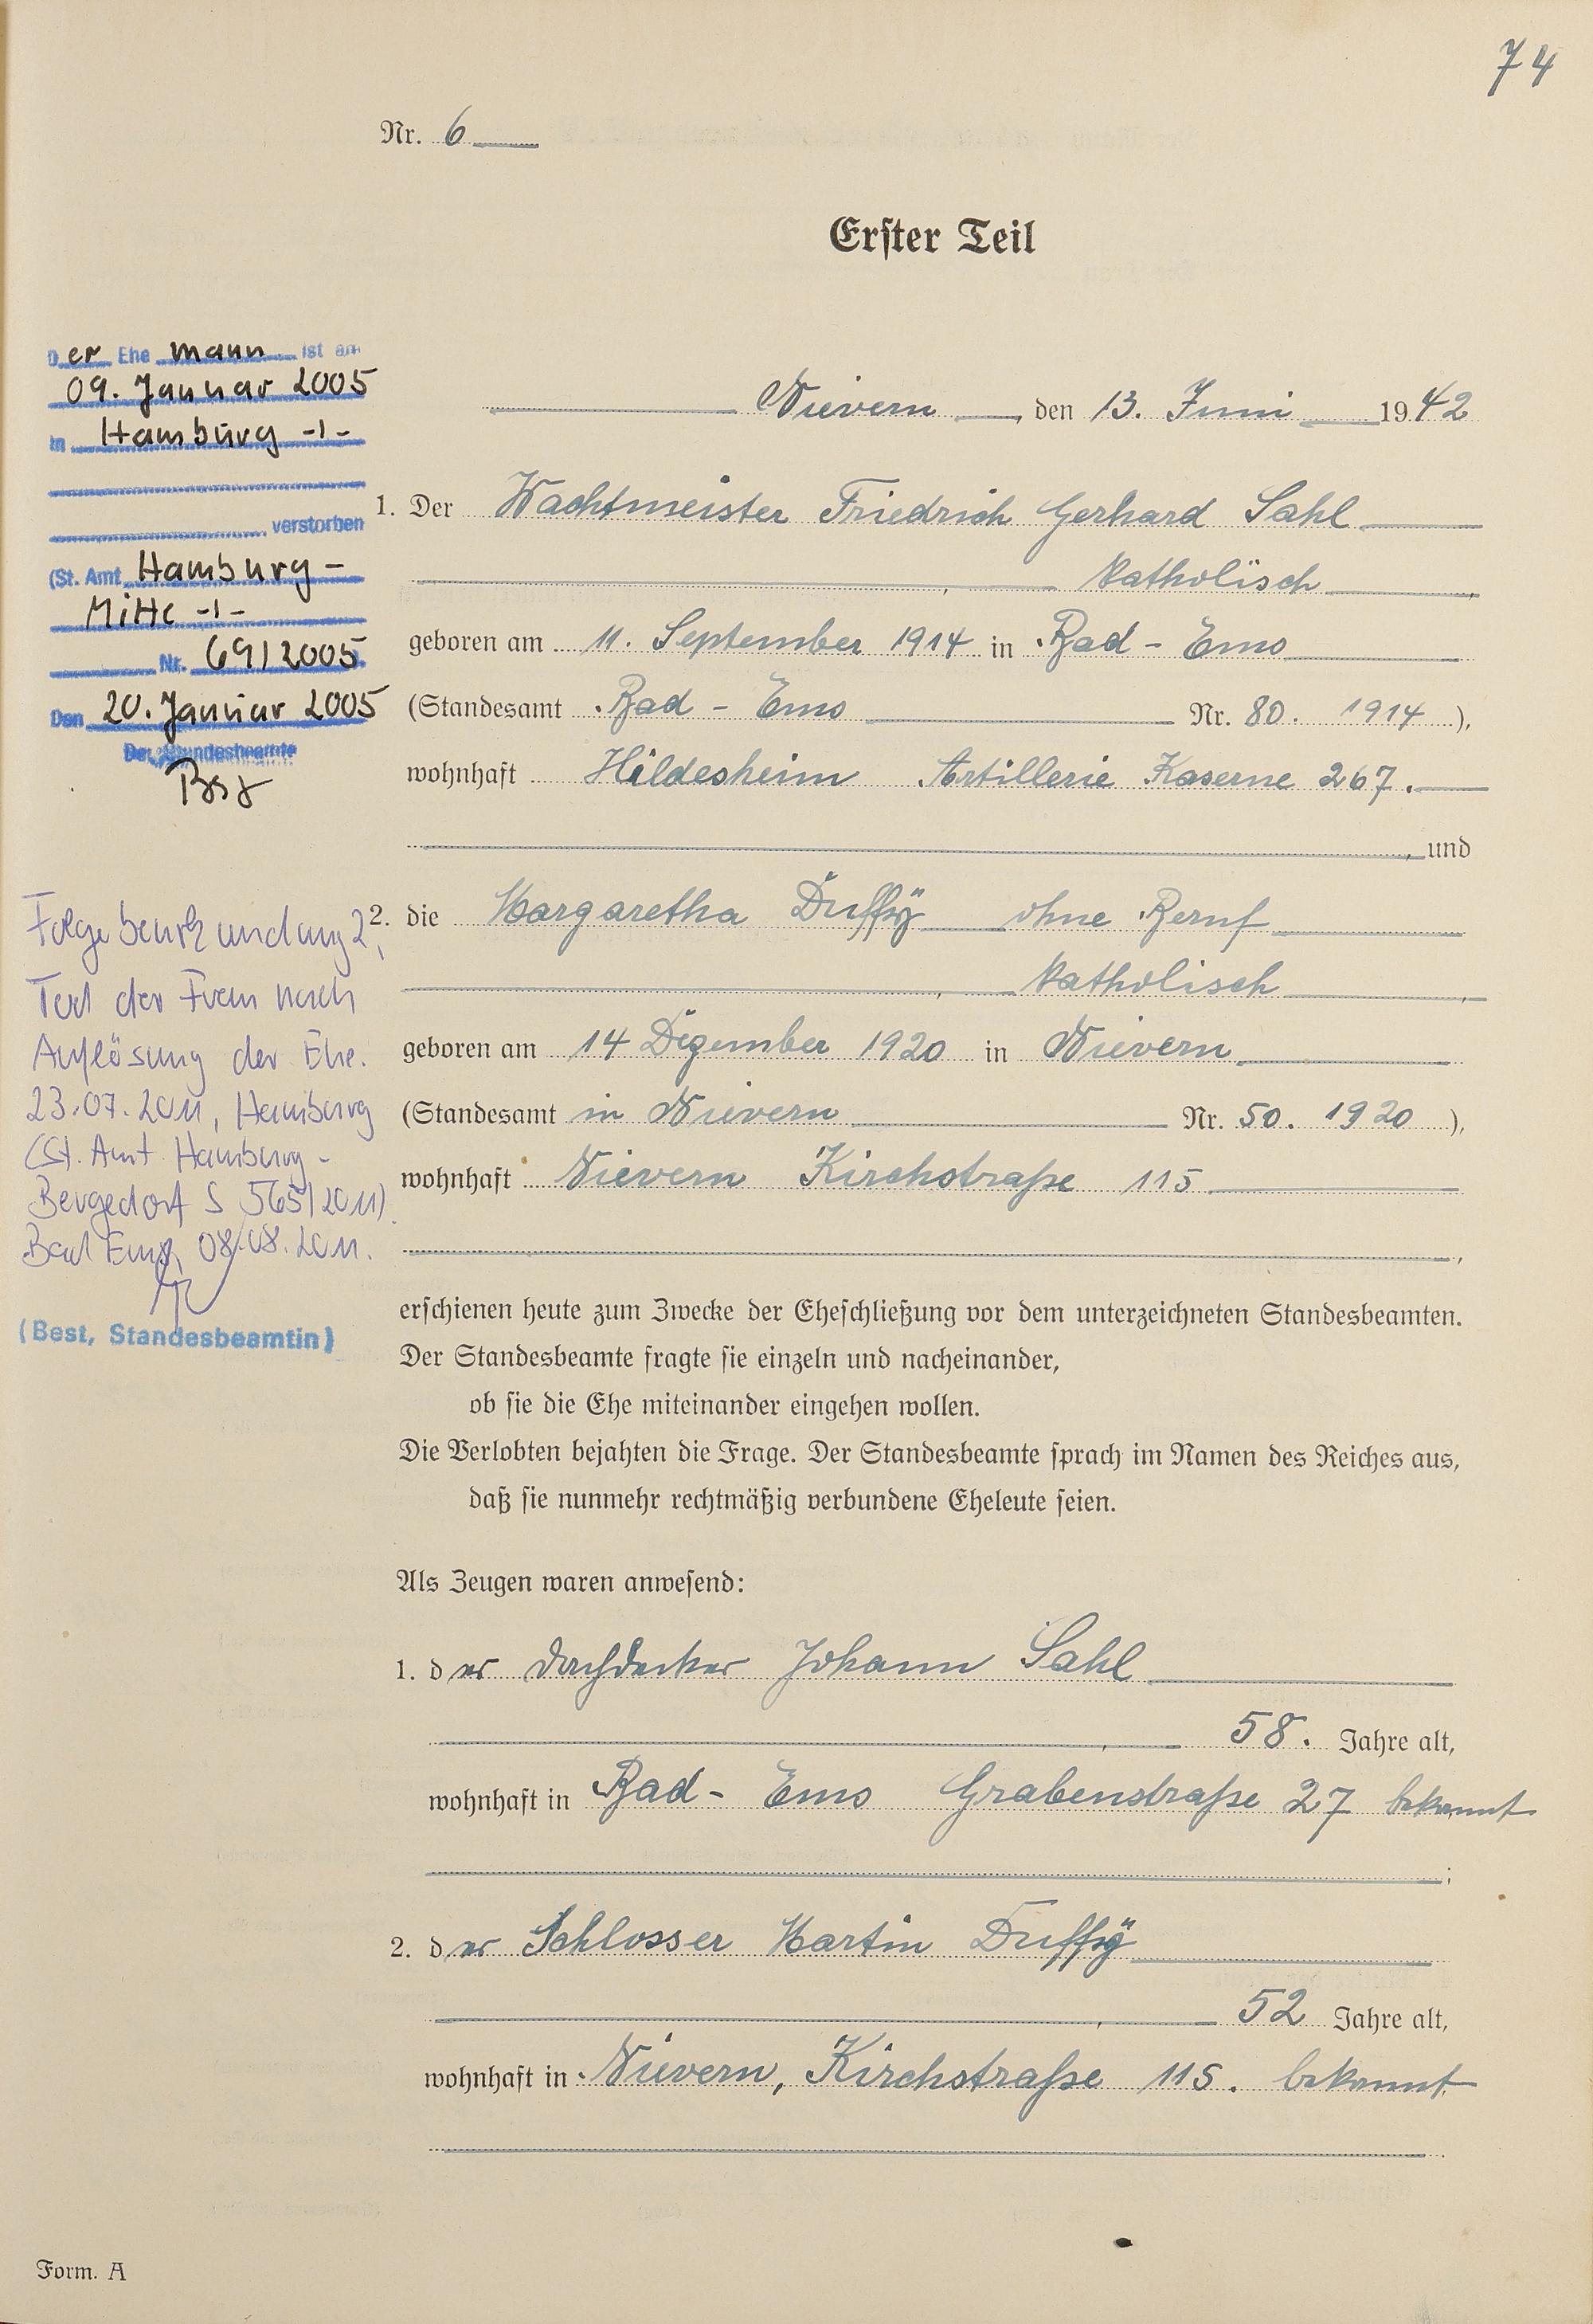 74
Nr. 6
Erster Teil
Der Ehe mann ist am
09. Januar 2005
in Hamburg -/-
verstorben
(St. Amt Hamburg-
Mitte -/-
Nr. 69/2005
Den 20. Januar 2005
Der Standesbeamte
Folgebeurkundung 2,
Tod der Frau nach
Auflösung der Ehe.
23.07.2011, Hamburg
(St. Amt Hamburg-
Bergedorf S 565/2011)
Bad Ems, 08.08.2011.
(Best, Standesbeamtin)
Nievern, den 13. Juni 1942
1. Der Wachtmeister Friedrich Gerhard Sahl
katholisch,
geboren am 11. September 1914 in Bad-Ems
(Standesamt Bad-Ems Nr. 80. 1914),
wohnhaft Hildesheim Artillerie Kaserne 267.
, und
2. die Margaretha Duffÿ ohne Beruf
, katholisch,
geboren am 14 Dezember 1920 in Nievern
(Standesamt in Nievern Nr. 50. 1920),
wohnhaft Nievern Kirchstraße 115
,
erschienen heute zum Zwecke der Eheschließung vor dem unterzeichneten Standesbeamten.
Der Standesbeamte fragte sie einzeln und nacheinander,
ob sie die Ehe miteinander eingehen wollen.
Die Verlobten bejahten die Frage. Der Standesbeamte sprach im Namen des Reiches aus,
daß sie nunmehr rechtmäßig verbundene Eheleute seien.
Als Zeugen waren anwesend:
1. der Dachdecker Johann Sahl
, 58. Jahre alt,
wohnhaft in Bad-Ems Grabenstraße 27 bekannt
;
2. der Schlosser Martin Duffÿ
, 52 Jahre alt,
wohnhaft in Nievern, Kirchstraße 115. bekannt
.
Form. A